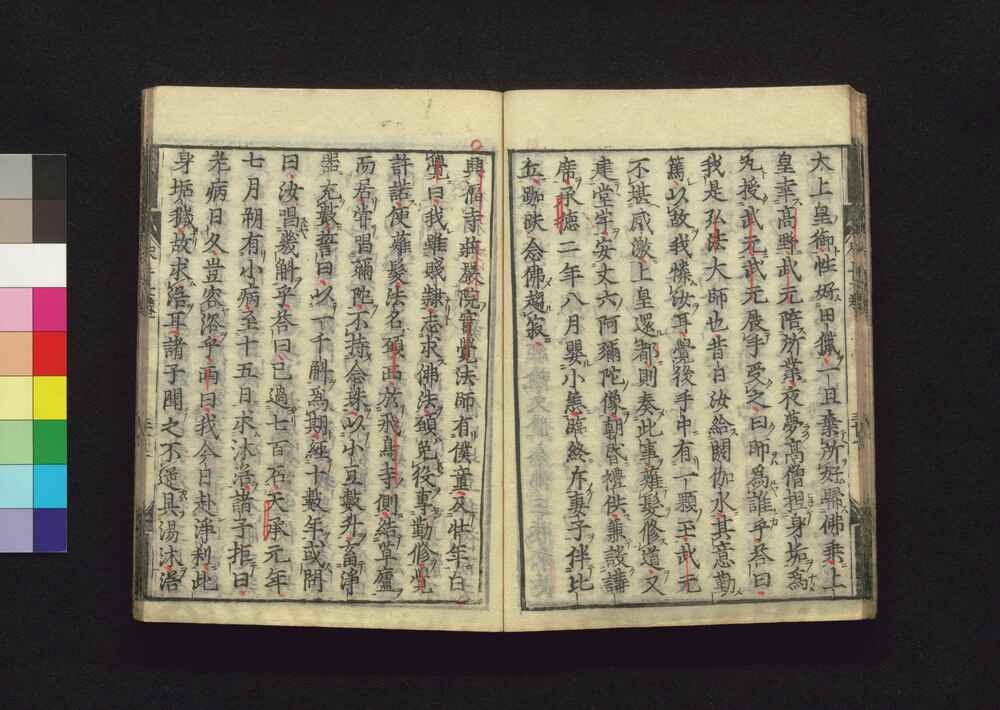 太上皇御性好田獵一旦棄所好歸佛乘上
皇幸高野武元陪所業夜夢高僧担身垢爲
丸授武元武元展手受之曰師爲誰乎答曰
我是弘法大師也昔日汝給閼伽水其意勤
篤以故我憐汝耳覺後手中有一顆玉武元
不堪感激上皇還都則奏此事薙髮修道又
建堂宇安丈六阿彌陀像朝昏禮供兼設講
席承德二年八月嬰小恙臨終斥妻子伴比
丘跏趺念佛趨寂
興福寺莊嚴院實覺法師有僕童及壯年白
覺曰我雖賤隸志求佛法願免役事勤修覺
許諾便薙髮法名碩西於飛鳥寺側結草廬
而居常唱彌陀不持念珠以小豆數升畜淨
器充數誓曰以一千斛爲期經十數年或問
曰汝唱幾斛乎答曰已過七百石天承元年
七月朔有小病至十五日求沐浴諸子拒曰
老病日久豈容浴乎西曰我今日赴淨刹此
身垢穢故求浴耳諸子聞之不逆具湯沐浴